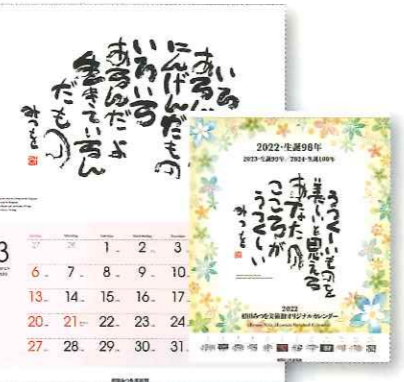 にんげんだもの
いろいろ
あるんだよ
生きているん
だもの
みつを
3
27 28 1 2 3
6 7 8 9 10
13 14 15 16 17
20 21 22 23 24
27 28 29 30 31
2022・生誕98年
2023・生誕99年/2024・生誕100年
うつくしいものを
美しいと思える
あなたの
こころが
うつくしい
みつを
2022
相田みつを美術館オリジナルカレンダー